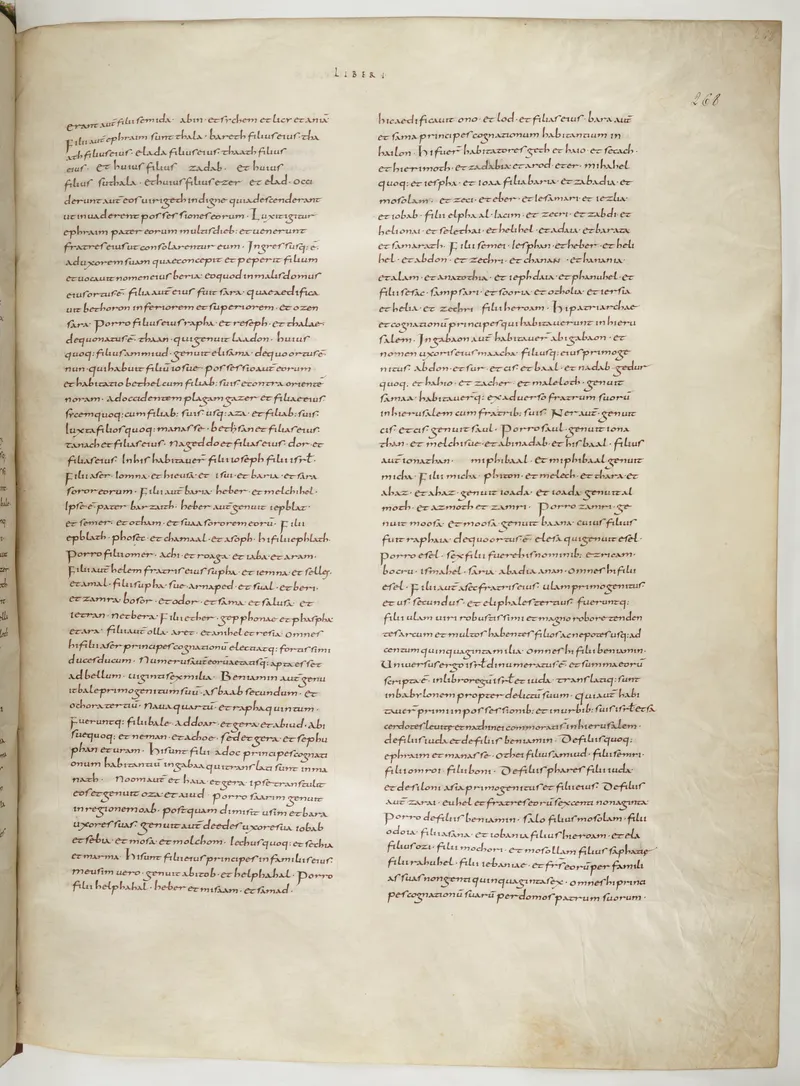 LIBER I
268
erant aut̄ filii semida · ahin · et sechem et lici et aniā
Filii aut̄ ephraim suthala · bareth filius eius tha
ath filius eius · elada filius eius · thaath filius
eius · et huius filius zadab · et huius
filius suthala · et huius filius ezer et elad · occi
derunt aut̄ eos uiri geth indigenę quia descenderant
ut inuaderent possessiones eorum · Luxit igitur
ephraim pater eorum multis dieb; et uenerunt
fratres eius ut consolarentur eum · Ingressusq; ē
ad uxorem suam quae concepit et peperit filium
et uocauit nomen eius beria · eo quod in malis domus
eius ortus ē · filia aut̄ eius fuit sara · quae aedifica
uit bethoron inferiorem et superiorem · et ozen
sara · Porro filius eius rapha · et reseph · et thalae ·
de quo natus ē · thaan · qui genuit laadon · huius
quoq; filius ammiud · genuit elisama · de quo ortus ē ·
nun · qui habuit filiū iosue · possessio aut̄ eorum
et habitatio bethel cum filiab; suis · et contra orientē
noram · ad occidentem plagam gazer et filiae eius
sycem quoq; cum filiab; suis usq; aza · et filiab; suis ·
Iuxta filios quoq; manasse · bethsan et filias eius ·
tanach et filias eius · mageddo et filias eius · dor · et
filias eius · In his habitauer̄ filii ioseph filii isrl ·
Filii aser · iomna · et hiesua · et isui · et baria · et sara
soror eorum · Filii aut̄ baria · heber · et melchihel ·
Ipse ē pater barzaith · heber aut̄ genuit iephlat ·
et semer · et otham · et suaa sororem eorū · Filii
ephlath · phosec · et chamaal · et asoph · hi filii ephlath ·
Porro filii omer · achi · et roaga · et iaba · et aram ·
Filii aut̄ helem fratris eius supha · et iemna · et selles ·
et amal · filii supha · sue · arnaped · et sual · et beri ·
et zamra · bosor · et odor · et sama · et salusa · et
ietran · et bera · Filii ether · gepphonae · et phaspha
et ara · filii aut̄ olla · aree · et anihel et resia · omnes
hi filii aser principes cognationū electi atq; fortissimi
duces ducum · Numerus aut̄ eorū aetatisq; aptae esset
ad bellum · uiginti sex milia · Beniamin aut̄ genu
it bale primogenitum suū · asbaal secundum · et
ochora tertiū · naua quartū · et rapha quintum ·
Fueruntq; filii bale · addoar · et gera · et abiud · abi
sue quoq; et neman · et achoe · sed et gera · et sephu
phan et uram · hi sunt filii · adoc principes cognati
onum habitantiū in gabaa qui translati sunt in ma
nath · Noom aut̄ et haia · et gera · ipse transtulit
eos et genuit oza et aiud · porro saarim genuit
in regione moab · postquam dimisit usim et bara
uxores suas · genuit aut̄ de edes uxore sua iobab
et sebia · et mosa · et molchom · Iehus quoq; et sechia
et marma · hi sunt filii eius principes in familiis eius ·
meusim uero · genuit abitob · et helphahal · Porro
filii helphahal · heber · et misaam · et samad ·
hic aedificauit ono · et lod · et filias eius · bara aut̄
et sama principes cognationum habitantium in
hailon · hi fuer̄ habitatores geth et haio · et secach ·
et hierimoth · et zadabia et arod · et er · mihahel
quoq; et iespha · et ioaa filii baria · et zabadia · et
mosolam · et zeci · et eber · et lesamari et iezlia ·
et iobab · filii elphaal · iacim · et zecri · et zabdi · et
helionai · et selethai · et helihel · et adaia · et baraza
et samarath · Filii semei · iesphan · et heber · et heli
hel · et abdon · et zechri · et chanan · et hanania ·
et alam · et anatothia · et iephdaia · et phanuhel · et
filii sesac · samsari · et sooria · et otholia · et iersia
et helia · et zechri · filii heroam · hi patriarchae
et cognationū principes qui habitauerunt in hieru
salem · In gabaon aut̄ habitauer̄ abigabaon · et
nomen uxoris eius maacha · filiusq; eius primoge
nitus · abdon · et sur · et cis · et baal · et nadab · gedur
quoq; et hahio · et zacher · et maleloth · genuit
samaa · habitauer̄q; ex aduerso fratrum suorū
in hierusalem cum fratrib; suis · Ner aut̄ · genuit
cis · et cis · genuit saul · Porro saul · genuit iona
than · et melchisue · et abinadab · et hisbaal · filius
aut̄ ionathan · miphibaal · et miphibaal genuit
micha · filii micha · phiton · et melech · et thara · et
ahaz · et ahaz · genuit ioada · et ioada genuit al
moth · et azmoth · et zamri · Porro zamri · ge
nuit moosa · et moosa · genuit baana · cuius filius
fuit raphaia · de quo ortus ē · elesa qui genuit esel ·
Porro esel · sex filii fuer̄ his nominib; ezricam ·
bocru · ismahel · saria · abadia · anan · omnes hi filii
esel · Filii aut̄ asec fratris eius · ulam primogenitus
et us · secundus · et eliphalet tertius · fueruntq;
filii ulam uiri robustissimi et magno robore tenden
tes arcum · et multos habentes filios ac nepotes usq; ad
centum quinquaginta milia · omnes hi filii beniamin ·
Uniuersus ergo isrl dinumeratus ē · et summa eorū
scripta ē · in libro regū isrl · et iuda · translatiq; sunt
in babylonem propter delictū suum · qui aut̄ habi
tauer̄ primi in possessionib; et in urbib; suis isrl et sa
cerdotes leuitę et nathinei commorati s̄ in hierusalem ·
de filiis iuda et de filiis beniamin · De filiis quoq;
ephraim et manasse · othei filius amiud · filii semri ·
filii omroi · filii boni · De filiis phares filii iuda ·
et de siloni asia primogenitus et filii eius · De filiis
aut̄ zarai · euhel et fratres eorū sexcenti nonaginta ·
Porro de filiis beniamin · salo filius mosolam · filii
odoia · filii asana · et iobania filius hieroam · et ela
filius ozi · filii mochori · et mosollam filius saphatiae ·
filii rahuhel · filii iebaniae · et fr̄s eorū per famili
as suas nongenti quinquaginta sex · omnes hi princi
pes cognationū suarū per domos patrum suorum ·